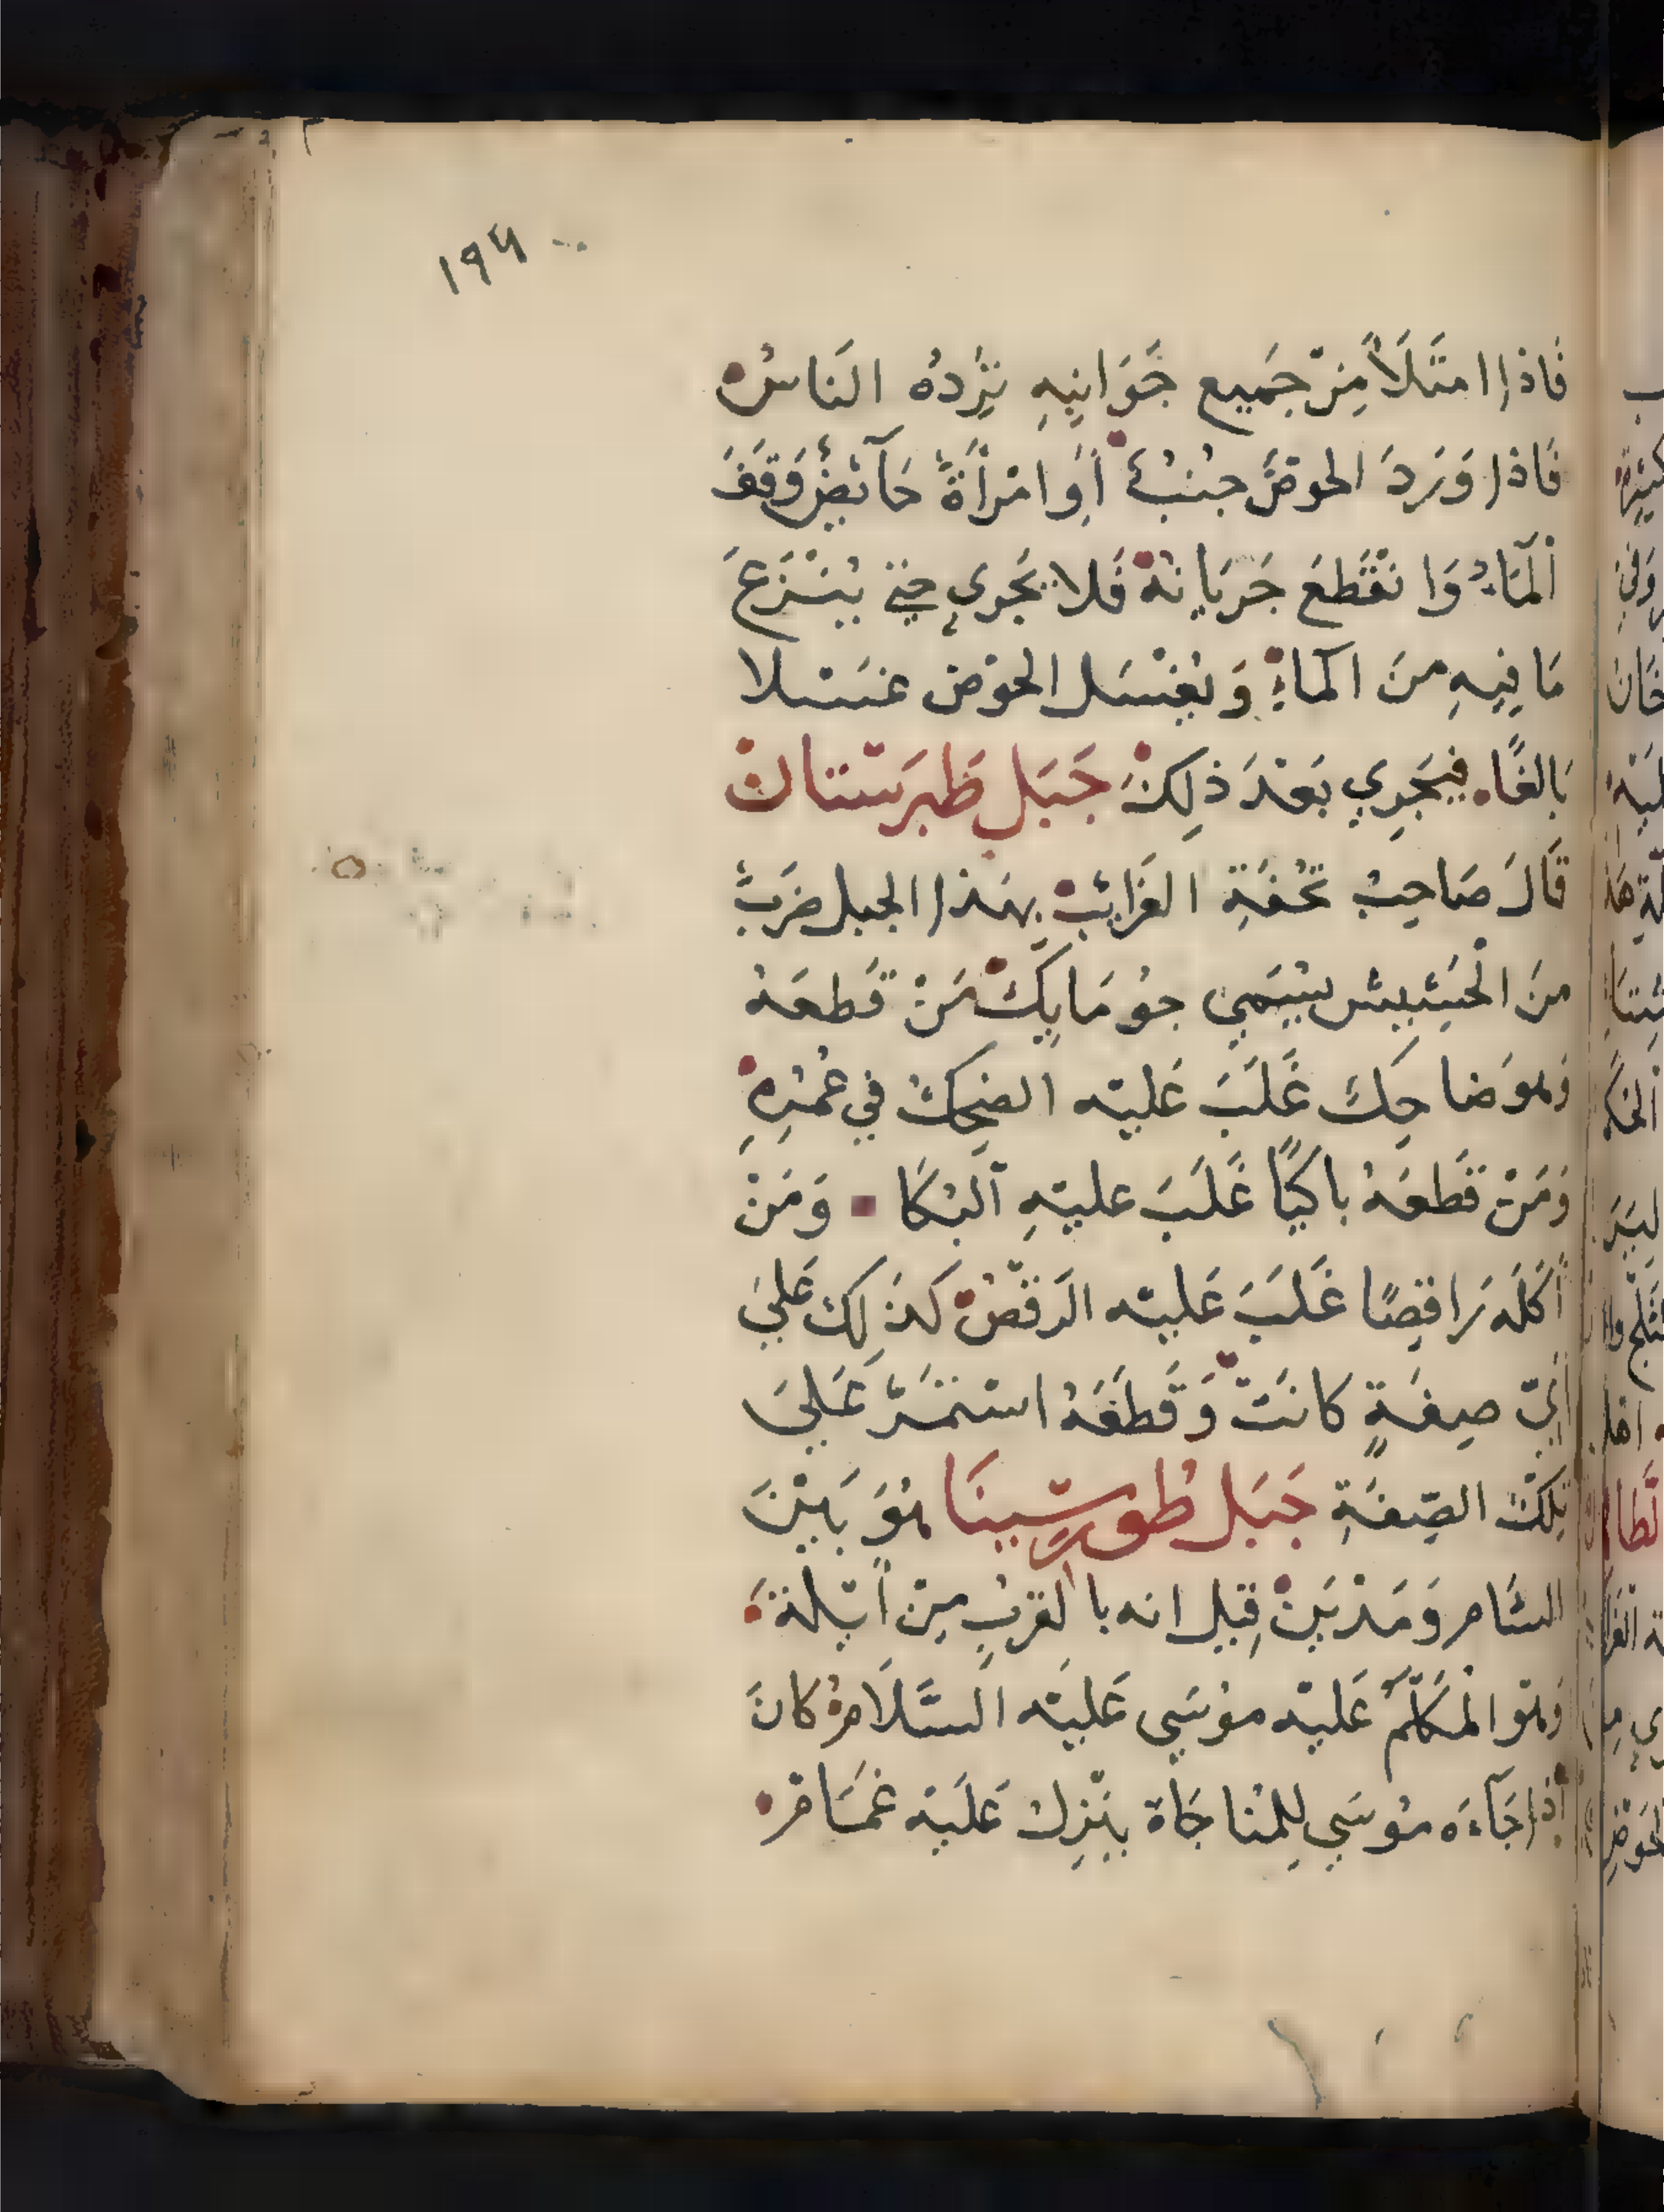 ١٩٤
فَاذا امتَلَأَ مِنْ جَمِيع جَوَانِبِهِ يَرِدُهُ النَاسُ
فَاذا وَرَدَ الحوضَ جنُبٌ أَوِ امْرأَةٌ حَآئِضٌ وَقَفَ
اَلْمَآءُ وَانْقَطَعَ جَرَيَانهُ فَلا يَجْرِي حَتي يُنْزَعَ
مَا فِيهِ منَ الماءِ وَيُغْسَل الحَوْض غسَلا
بَالغًا فيَجرِي بَعْدَ ذلِكَ جَبَل طَبرَسْتان
قَالَ صَاحِبُ تحُفَةِ الغَرَائِبِ بِهَذا الجبل ضَربٌ
منَ الْحَشِيش يُسَمي جوُ مَا يك مَنْ قَطعَهُ
وَهوَ ضاحِك غَلَبَ عَليْه الضحِكُ في عُمْرِهِ
وَمَنْ قَطَعَهُ باكيًا غَلَبَ عليْهِ اَلبُكَا وَمَنْ
أَكلَه رَاقِصًا غَلَبَ عَليْه الرَقْصُ كَذَلِك عَليَ
أَيّ صِفَةٍ كانَتْ وَقَطَعَهُ اسْتمَرَّ عَليَ
تِلْكَ الصِفَةِ جَبَل طُور سِينَا هُوَ بَيْنَ
الشَام وَمَدْيَنْ قِيل انه بالقربِ مِنْ أَيْلة
وَهُوَ الْمُكَلَّمُ عَليْه موُسَي عَليْه السَّلَامُ كانَ
اذا جَآءَه موُسَي لِلمُناجَاة يَنْزِلُ عَلَيْه غمَامْ